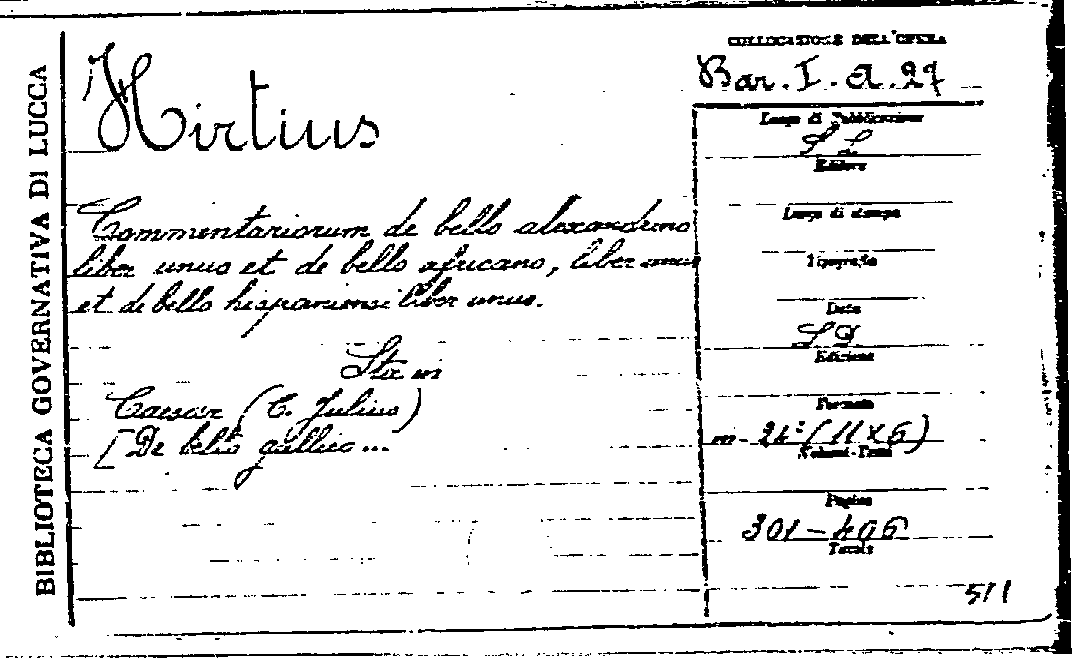 BIBLIOTECA GOVERNATIVA DI LUCCA
Hirtius
Commentariorum de bello alexandrino
liber unus et de bello africano, liber unus
et de bello hispaniensi liber unus.
Sta in
Caesar (C. Julius)
[De bello gallico...
COLLOCAZIONE DELL'OPERA
Bar. I. a. 27
Luogo di Pubblicazione
S L
Editore
Luogo di stampa
Tipografia
Data
S D
Edizione
Formato
in- 24° (11x6)
Volumi-Tomi
Pagine
301-406
Tavole
511